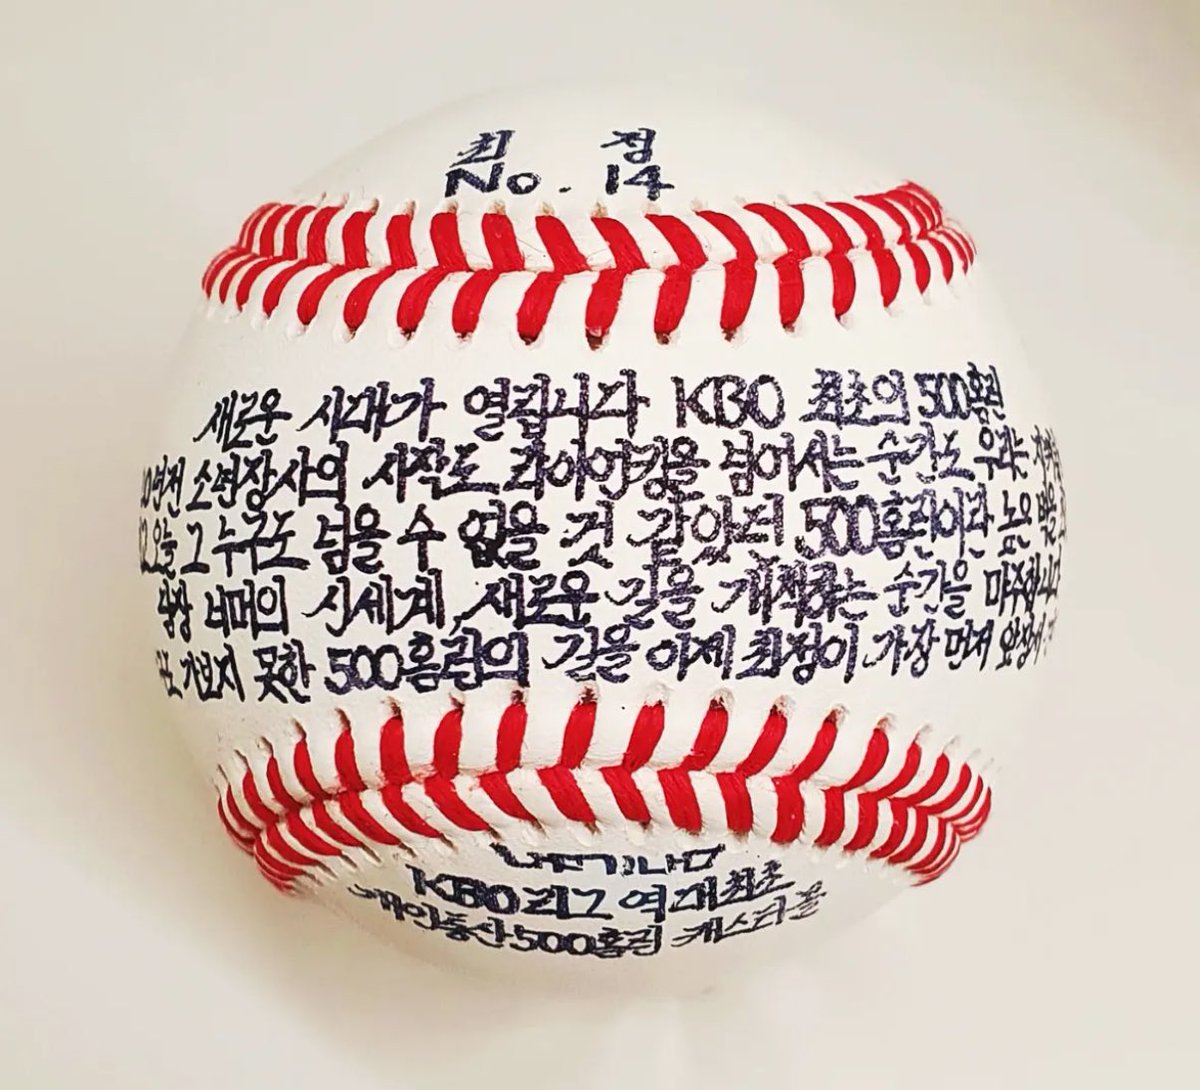 최 정
No. 14
새로운 시대가 열립니다 KBO 최초의 500홈런
년전 소년장사의 시작도 라이언킹을 넘어서는 순간도 우리는
오늘 그 누구도 넘을 수 없을 것 같았던 500홈런이란 높은 벽을
너머의 신세계, 새로운 길을 개척하는 순간을 마주합니다
가보지 못한 500홈런의 길을 이제 최정이 가장 먼저
KBO리그 역대최초
개인통산500홈런 캐스터볼